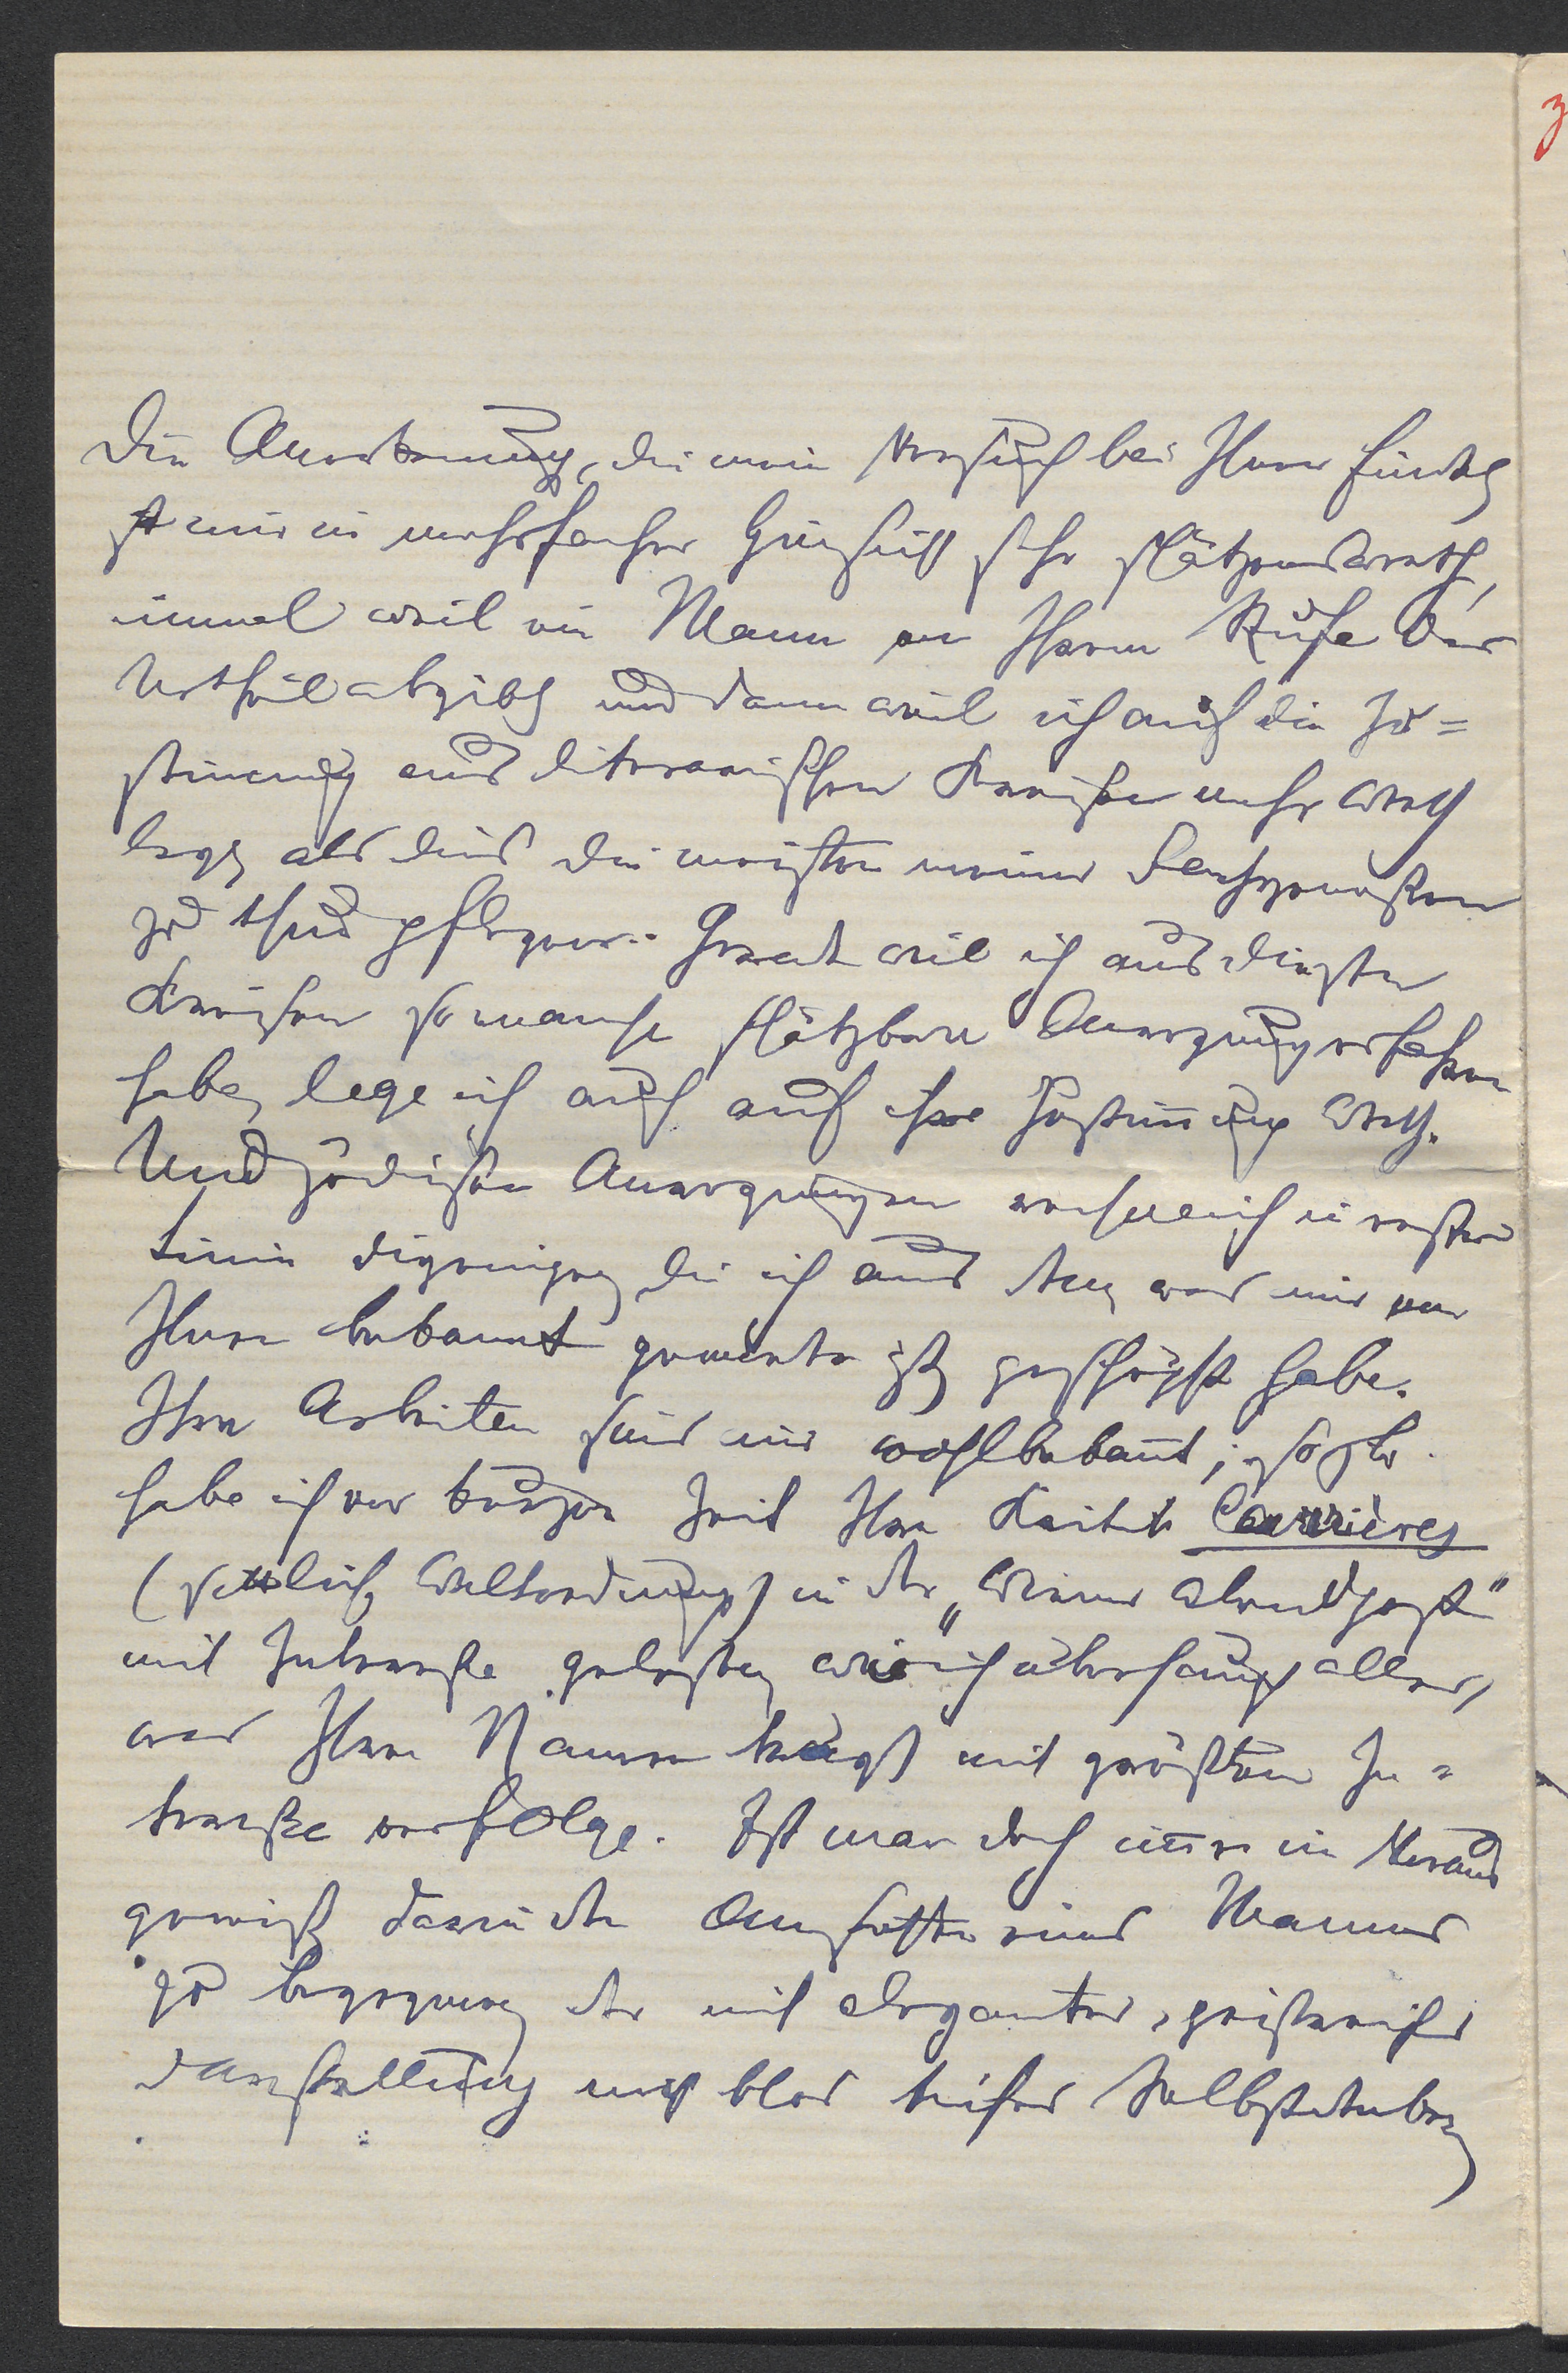 Die Anerkennung, die mein Versuch bei Ihnen findet,
ist mir in mehrfacher Hinsicht sehr schätzenswerth,
einmal weil ein Mann von Ihrem Rufe das
Urtheil abgibt und dann weil ich auf die Zu=
stimmung aus literarischen Kreisen mehr Werth
lege, als dies die meisten meiner Fachgenossen
zu thun pflegen. Gerade weil ich aus diesen
Kreisen so manche schätzbare Anregung erfahren
habe, lege ich auch auf ihre Zustimmung Werth.
Und zu diesen Anregungen rechne ich in erster
Linie diejenigen, die ich aus dem, was mir von
Ihnen bekannt geworden ist, geschöpft habe.
Ihre Arbeiten sind mir wohlbekannt; so z.B.
habe ich vor kurzer Zeit Ihre Kritik Carrieres
(sittliche Weltordnung) in der „Wiener Abendpost“
mit Interesse gelesen, wie ich überhaupt alles,
was Ihren Namen trägt mit größtem In=
teresse verfolge. Ist man doch immer im Voraus
gewiß darin den Ansichten eines Mannes
zu begegnen, der mit eleganter, geistreicher
Darstellung nicht blos tiefes Selbstdenken,
z